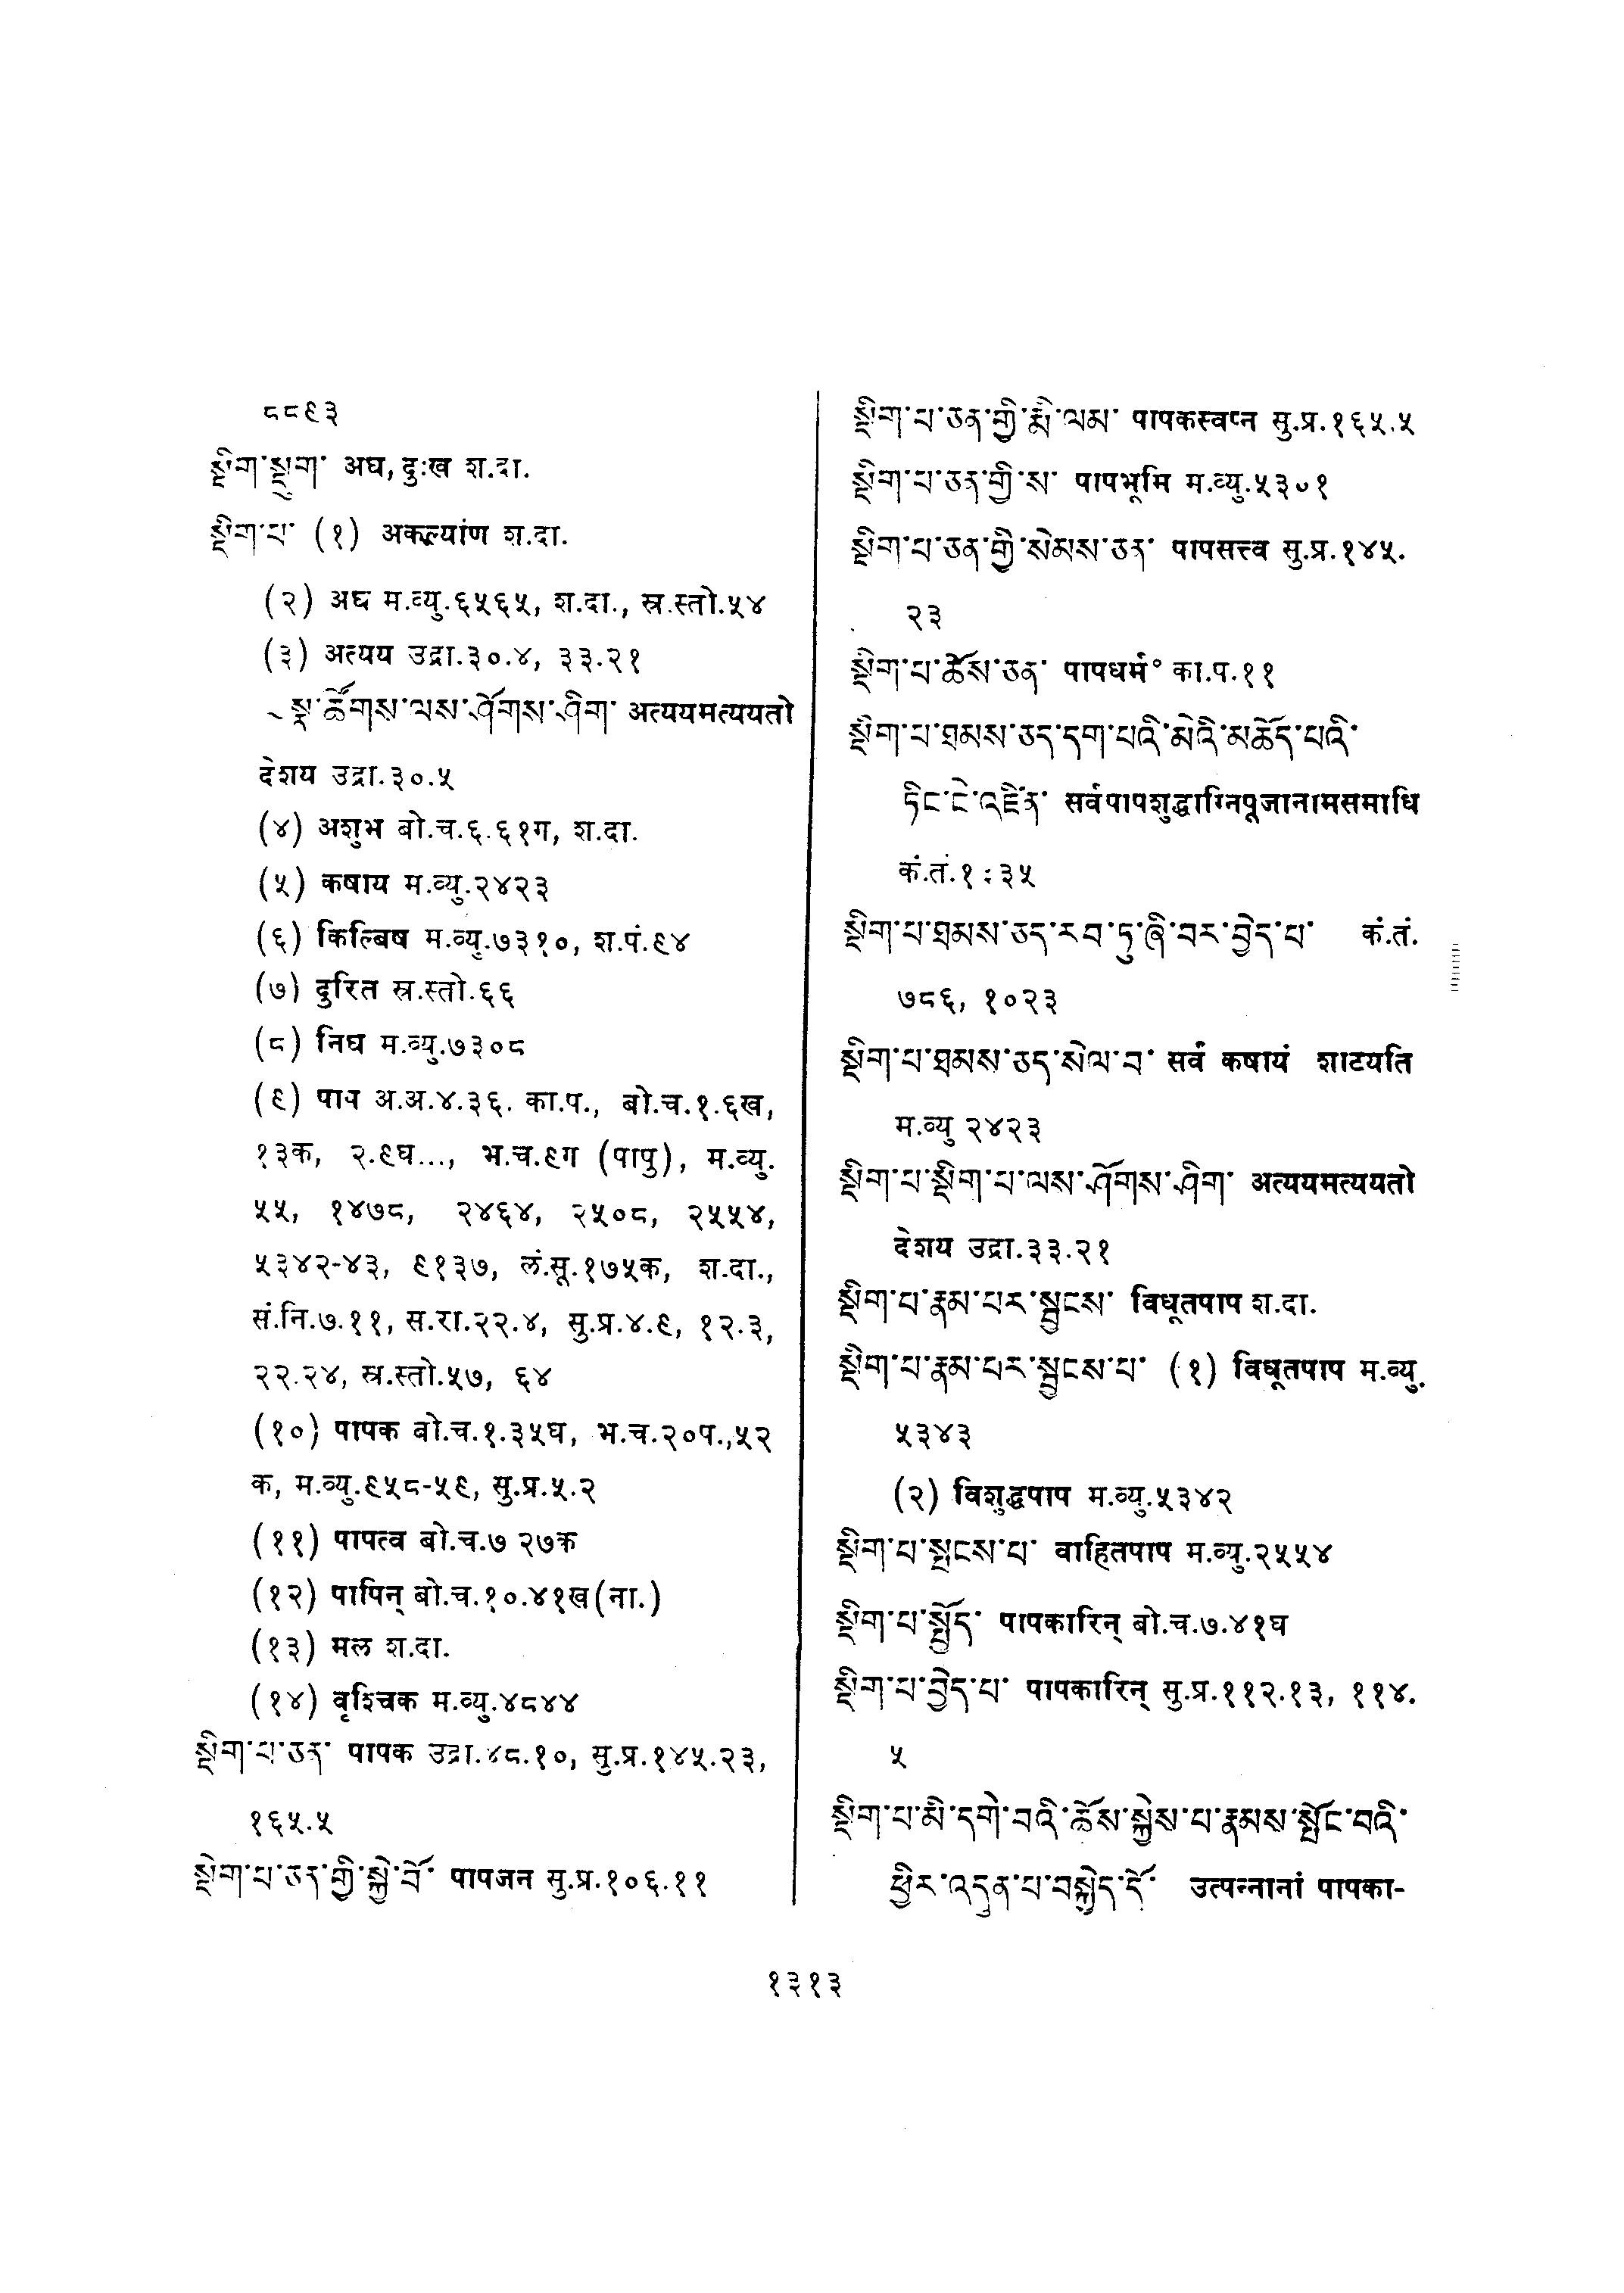 ८८९३
སྡིག་སྡུག་ अघ, दुःख श.दा.
སྡིག་པ་ (१) अकल्यांण श.दा.
(२) अघ म.व्यु.६५६५, श.दा., स्र.स्तो.५४
(३) अत्यय उद्रा.३०.४, ३३.२१
~ སྣ་ཚོགས་ལས་ཤོགས་ཤིག་ अत्ययमत्ययतो
देशय उद्रा.३०.५
(४) अशुभ बो.च.६.६१ग, श.दा.
(५) कषाय म.व्यु.२४२३
(६) किल्बिष म.व्यु.७३१०, श.पं.९४
(७) दुरित स्र.स्तो.६६
(८) निघ म.व्यु.७३०८
(९) पाप अ.अ.४.३६. का.प., बो.च.१.६ख,
१३क, २.९घ..., भ.च.९ग (पापु), म.व्यु.
५५, १४७८, २४६४, २५०८, २५५४,
५३४२-४३, ९१३७, लं.सू.१७५क, श.दा.,
सं.नि.७.११, स.रा.२२.४, सु.प्र.४.९, १२.३,
२२.२४, स्र.स्तो.५७, ६४
(१०) पापक बो.च.१.३५घ, भ.च.२०प.,५२
क, म.व्यु.९५८-५९, सु.प्र.५.२
(११) पापत्व बो.च.७ २७क
(१२) पापिन् बो.च.१०.४१ख(ना.)
(१३) मल श.दा.
(१४) वृश्चिक म.व्यु.४८४४
སྡིག་པ་ཅན་ पापक उद्रा.४८.१०, सु.प्र.१४५.२३,
१६५.५
སྡིག་པ་ཅན་གྱི་སྐྱེ་བོ་ पापजन सु.प्र.१०६.११
སྡིག་པ་ཅན་གྱི་རྨི་ལམ་ पापकस्वप्न सु.प्र.१६५.५
སྡིག་པ་ཅན་གྱི་ས་ पापभूमि म.व्यु.५३०१
སྡིག་པ་ཅན་གྱི་སེམས་ཅན་ पापसत्त्व सु.प्र.१४५.
२३
སྡིག་པ་ཆོས་ཅན་ पापधर्म° का.प.११
སྡིག་པ་ཐམས་ཅད་དག་པའི་མེའི་མཆོད་པའི་
ཏིང་ངེ་འཛིན་ सर्वपापशुद्धाग्निपूजानामसमाधि
कं.तं.१ : ३५
སྡིག་པ་ཐམས་ཅད་རབ་ཏུ་ཞི་བར་བྱེད་པ་ कं.तं.
७८६, १०२३
སྡིག་པ་ཐམས་ཅད་སེལ་བ་ सर्वं कषायं शाटयति
म.व्यु २४२३
སྡིག་པ་སྡིག་པ་ལས་ཤོགས་ཤིག་ अत्ययमत्ययतो
देशय उद्रा.३३.२१
སྡིག་པ་རྣམ་པར་སྦྱངས་ विधूतपाप श.दा.
སྡིག་པ་རྣམ་པར་སྦྱངས་པ་ (१) विधूतपाप म.व्यु.
५३४३
(२) विशुद्धपाप म.व्यु.५३४२
སྡིག་པ་སྤངས་པ་ वाहितपाप म.व्यु.२५५४
སྡིག་པ་སྤྱོད་ पापकारिन् बो.च.७.४१घ
སྡིག་པ་བྱེད་པ་ पापकारिन् सु.प्र.११२.१३, ११४.
५
སྡིག་པ་མི་དགེ་བའི་ཆོས་སྐྱེས་པ་རྣམས་སྤོང་བའི་
ཕྱིར་འདུན་པ་བསྐྱེད་དོ་ उत्पन्नानां पापका-
१३१३